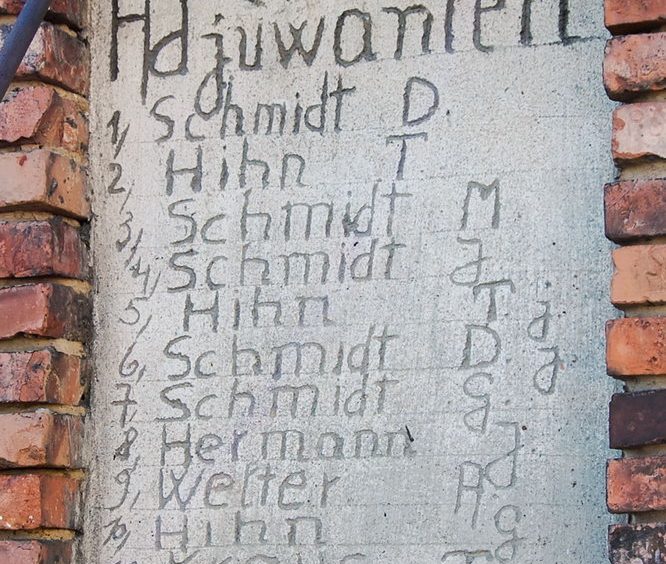 Adjuwanten
1, Schmidt D.
2, Hihn T
3, Schmidt M
4, Schmidt J
5, Hihn T j
6, Schmidt D. j
7, Schmidt G.
8, Hermann J
9, Welter A.
10, Hihn g